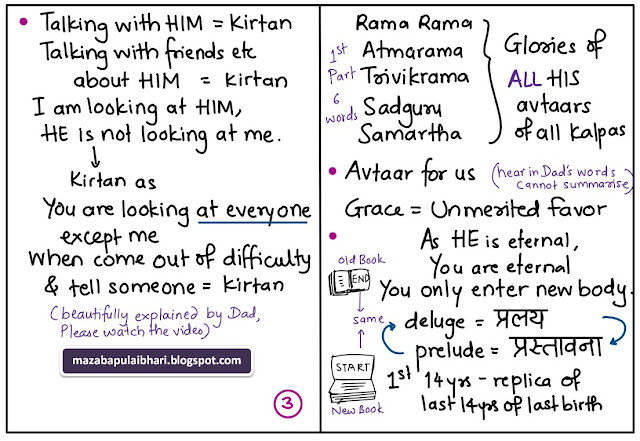 • Talking with HIM = Kirtan
Talking with friends etc
about HIM = Kirtan
I am looking at HIM,
HE is not looking at me.
↓
Kirtan as
You are looking at everyone
except me
When come out of difficulty
& tell someone = Kirtan
(beautifully explained by Dad,
Please watch the video)
mazabapulaibhari.blogspot.com
3
1st Part
6 words
Rama Rama
Atmarama
Trivikrama
Sadguru
Samartha
Glories of
ALL HIS
avtaars
of all Kalpas
• Avtaar for us (hear in Dad's words
cannot summarise)
Grace = Unmerited favor
• As HE is eternal,
You are eternal
You only enter new body.
Old Book
END
same
deluge = प्रलय
prelude = प्रस्तावना
START
New Book
1st 14yrs - replica of
last 14yrs of last birth